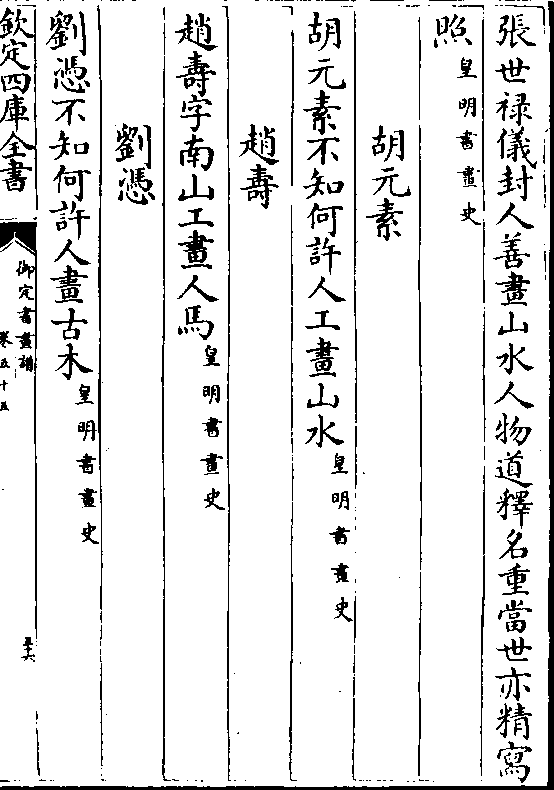 張世禄儀封人善畫山水人物道釋名重當世亦精寫
照皇明書畫史
胡元素
胡元素不知何許人工畫山水皇明書畫史
趙壽
趙壽字南山工畫人馬皇明書畫史
劉憑
劉憑不知何許人畫古木皇明書畫史
欽定四庫全書
御定書畫譜
卷五十五
五十六